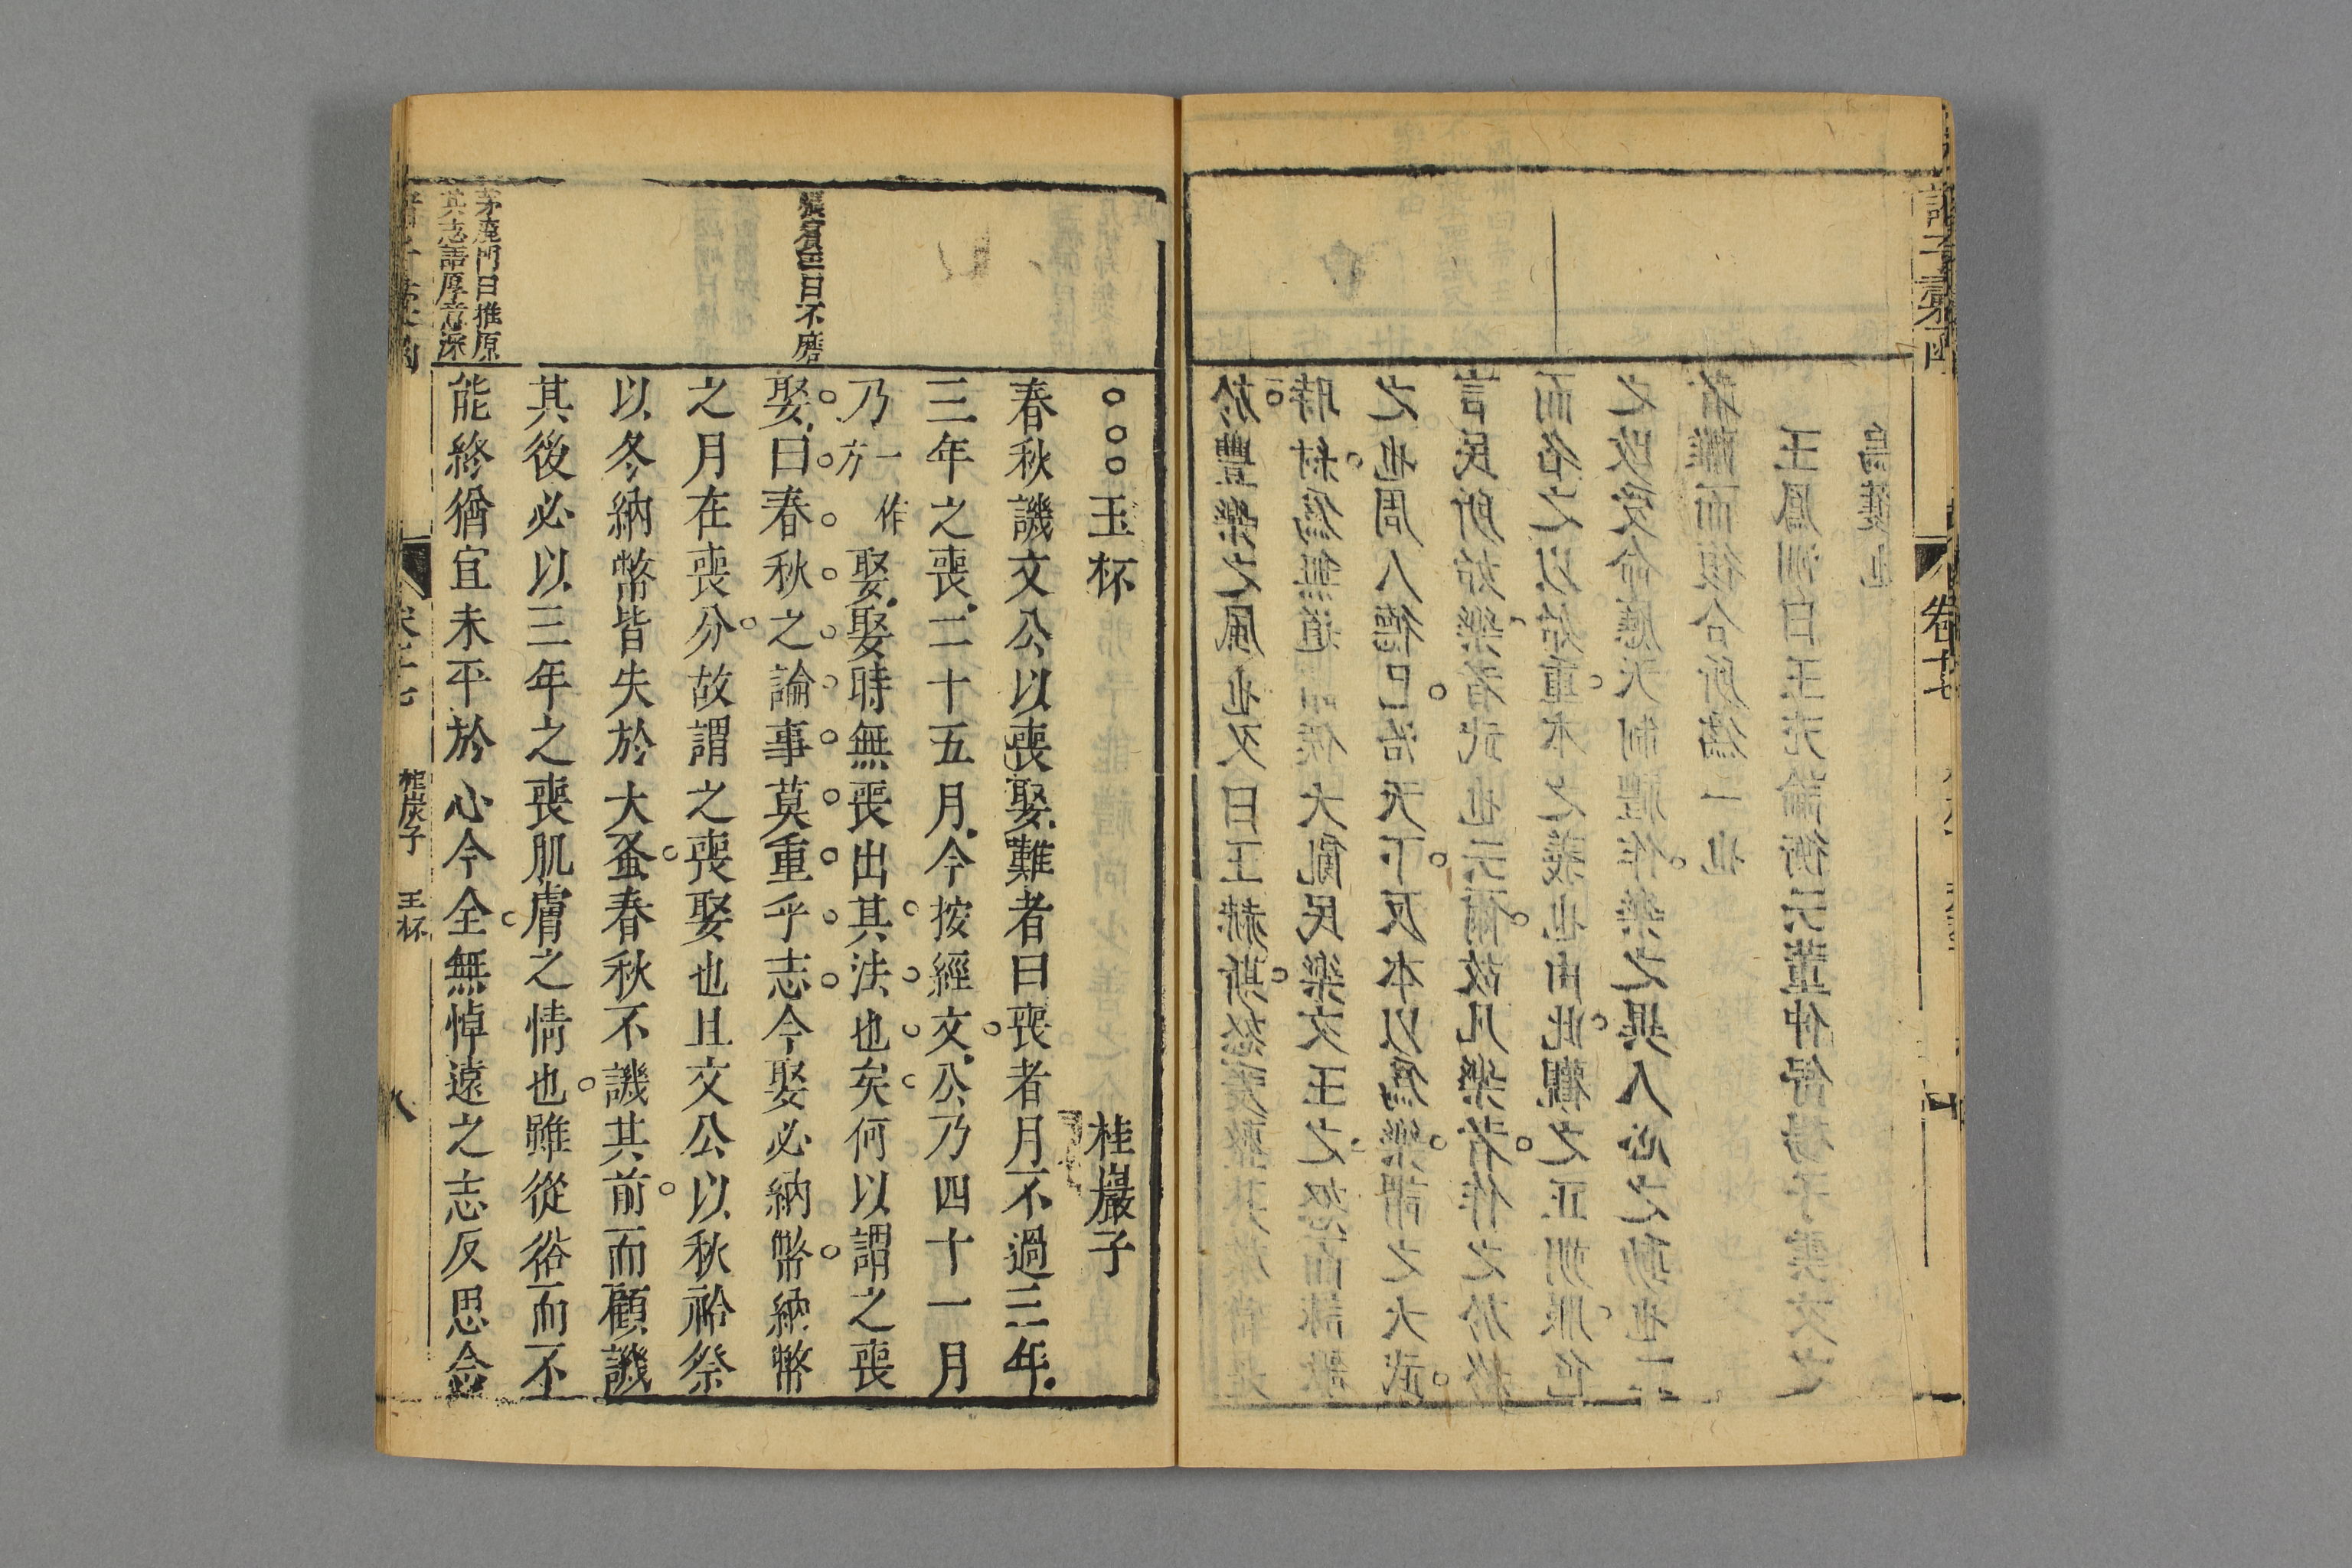 諸子彙函
卷十七
於豐樂之風也又曰王赫斯怒爰整其旅當是
時紂爲無道諸侯大亂民樂文王之怒而詠歌
之也周人德已洽天下反本以爲樂謂之大武
言民所始樂者武也云爾故凡樂者作之於終
而名之以始重本之義也由此觀之正朔服色
之改受命應天制禮作樂之異人心之動也二
者離而復合所爲一也
王鳳洲曰王充論衡云董仲舒揚子雲文之
烏獲也
玉杯 桂巖子
春秋譏文公以喪娶難者曰喪者月不過三年
三年之喪二十五月今按經文公乃四十一月
乃一作方娶娶時無喪出其法也矣何以謂之喪
張賓王曰不磨
娶曰春秋之論事莫重乎志今娶必納幣納幣
之月在喪分故謂之喪娶也且文公以秋祫祭
以冬納幣皆失於大蚤春秋不譏其前而顧譏
其後必以三年之喪肌膚之情也雖從俗而不
茅鹿門曰推原
其志語厚意深
能終猶宜未平於心今全無悼遠之志反思念
桂巖子 玉杯
八